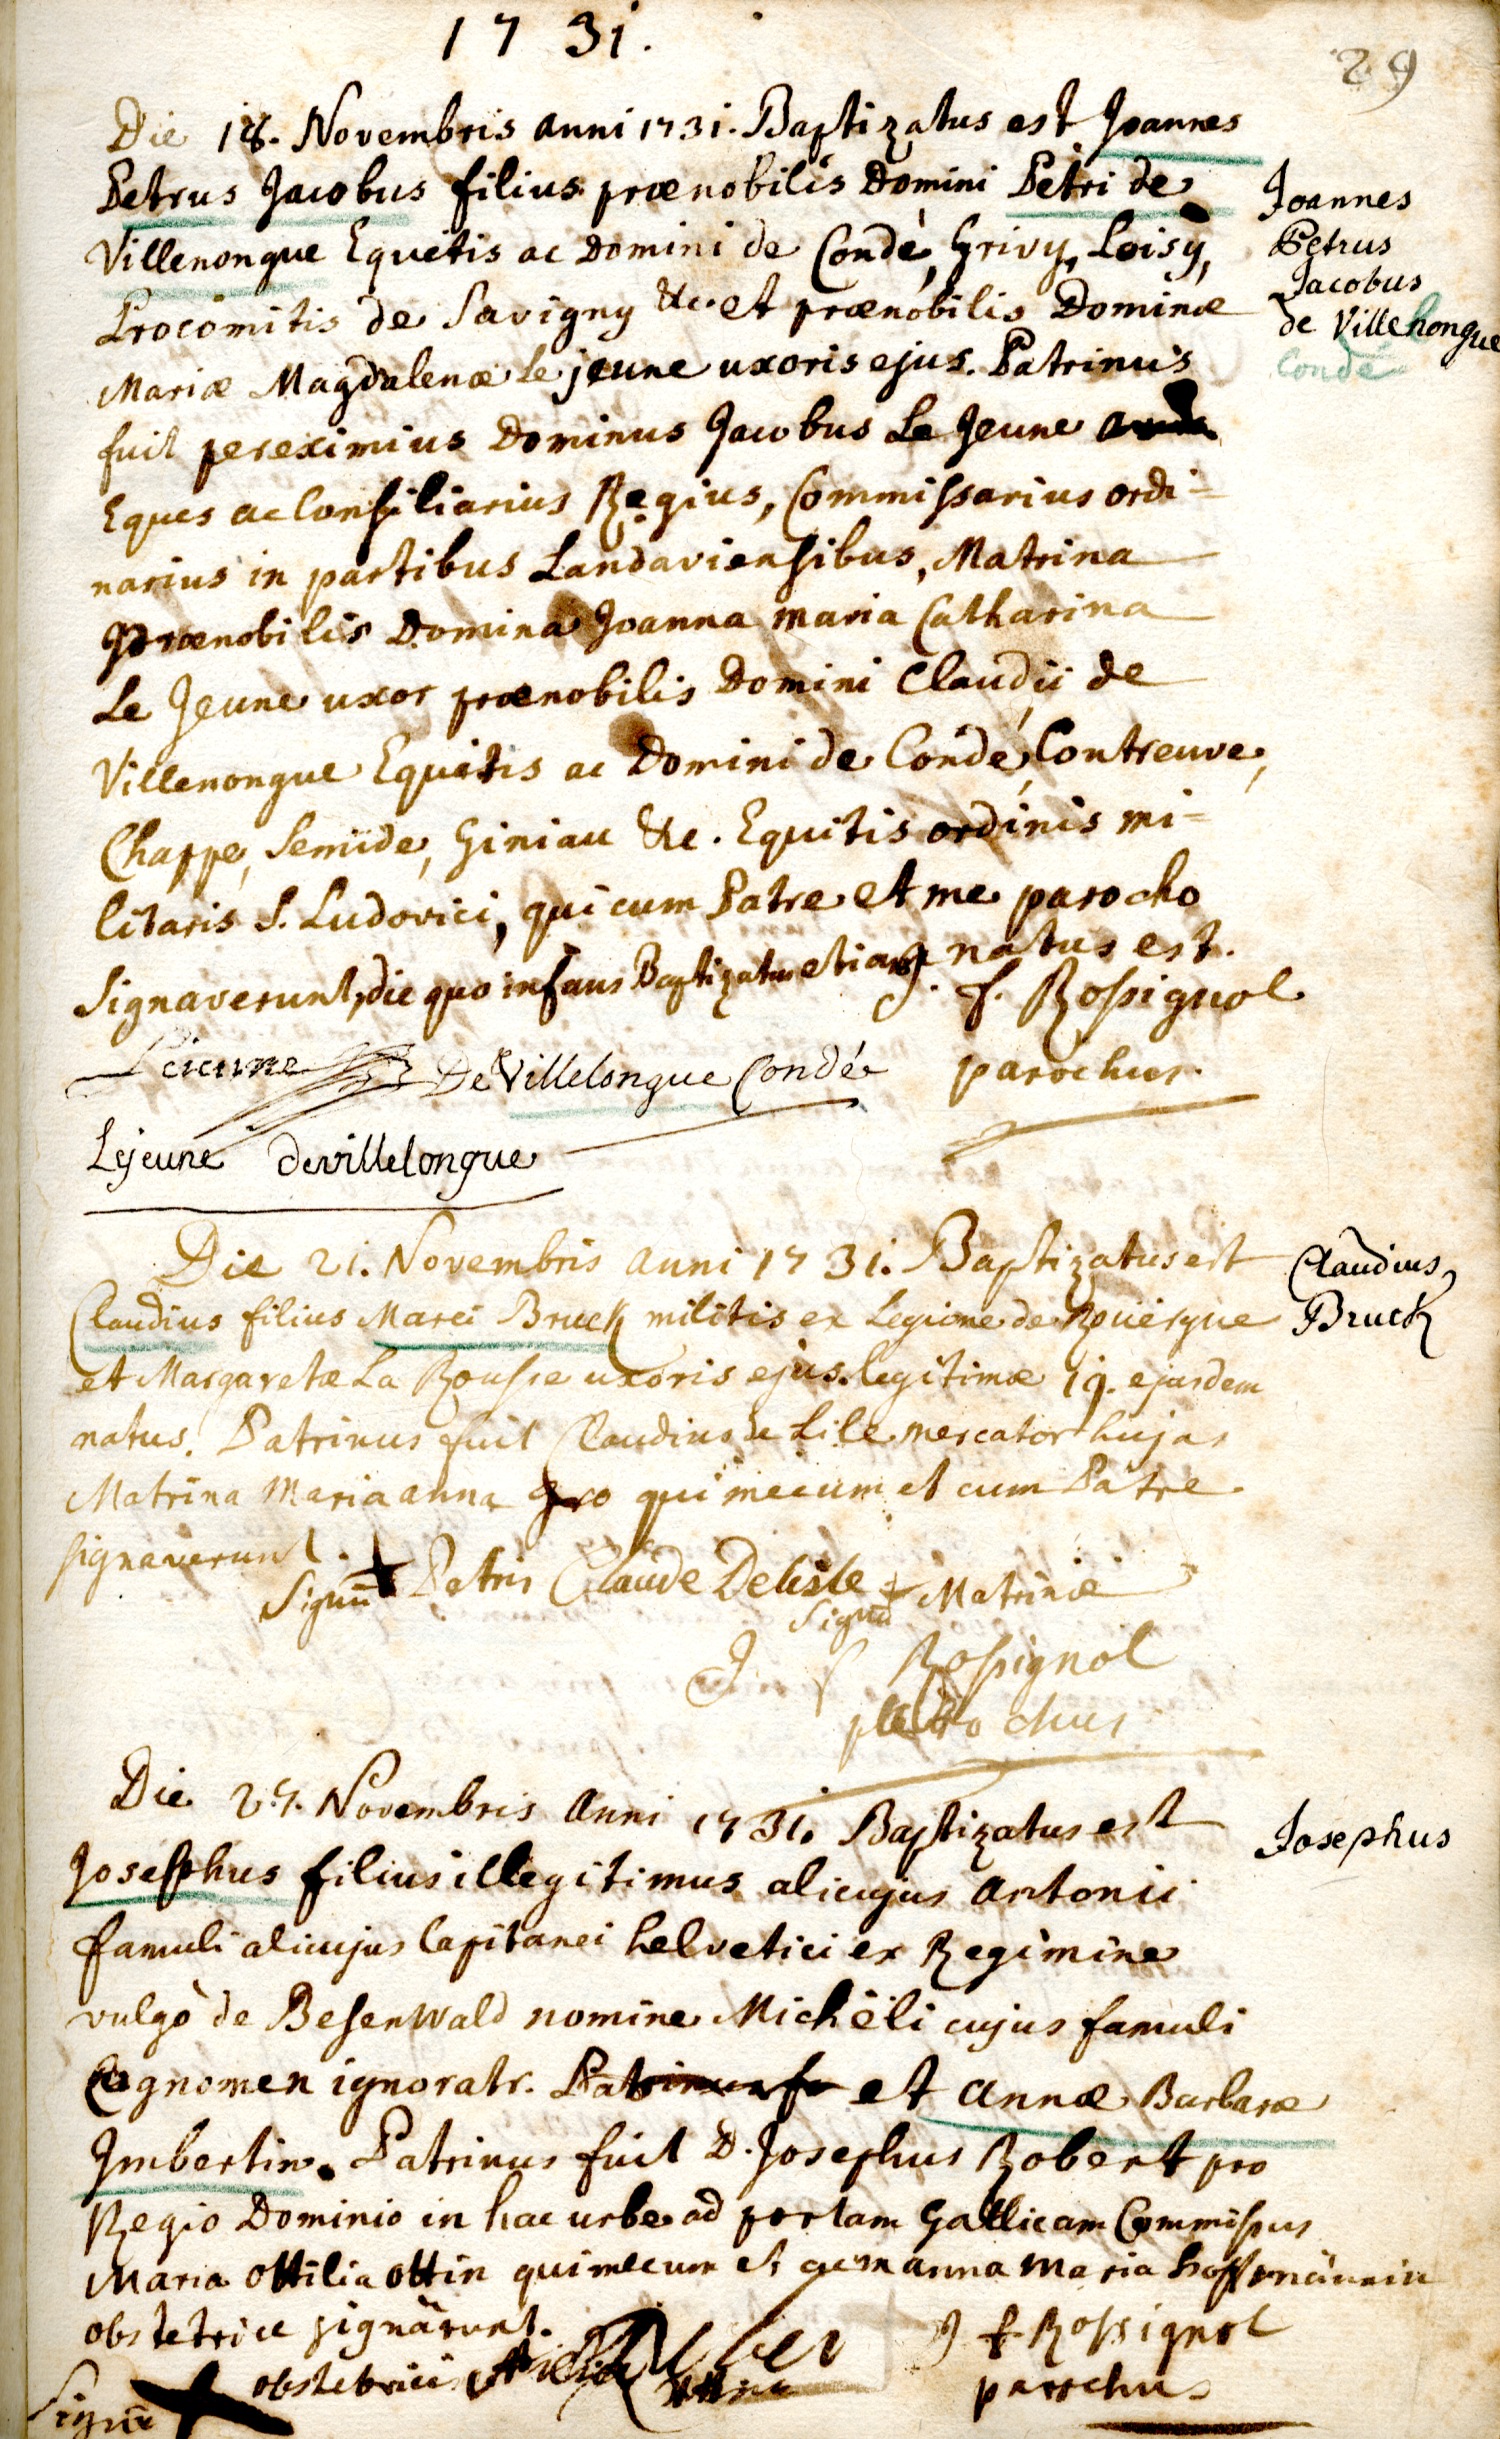 1731.
29
Die 18. Novembris anni 1731. Baptizatus est Joannes
Petrus Jacobus filius prænobilis Domini Petri de
Villenongue Equitis ac Domini de Condé, Grivy, Loisy,
Procomitis de Savigny &c. et prænobilis Dominæ
Mariæ Magdalenæ Le jeune uxoris ejus. Patrinus
fuit pereximius Dominus Jacobus Le Jeune
Eques ac Consiliarius Regius, Commissarius ordi=
narius in partibus Landaviensibus, Matrina
Prænobilis Domina Joanna Maria Catharina
Le Jeune uxor prænobilis Domini Claudii de
Villenongue Equitis ac Domini de Condé, Contreuve,
Chappe, Semide, Giniau &c. Equitis ordinis mi=
litaris S. Ludovici, qui cum Patre et me parocho
signaverunt, die quo infans Baptizatus etiam natus est.
J. f. Rossignol
parochus.
Joannes
Petrus
Jacobus
de Villelongue
Condé
Lejeune De Villelongue Condé
Lejeune devillelongue
Die 21. Novembris anni 1731. Baptizatus est
Claudius filius Marci Bruck militis ex Legione de Roüergue
et Margaretæ La Rousse uxoris ejus legitimæ 19. ejusdem
natus. Patrinus fuit Claudius de Lile mercator hujas
Matrina Maria anna gro qui mecum et cum Patre
signaverunt.
Claudius
Bruck
Signū Patris Claude Delisle Signū Matrinæ
J f Rossignol
parochus
Die 27. Novembris anni 1731. Baptizatus est
Josephus filius illegitimus alicujus Antonii
famuli alicujus Capitanei helvetici ex Regimine
vulgò de Besenwald nomine Michëli cujus famuli
Cognomen ignoratr. Patrinus fu et annæ Barbaræ
Imbertin. Patrinus fuit D. Josephus Robert pro
Regio Dominio in hac urbe ad portam Gallicam Commissus
Maria Ottilia Ottin qui mecum et cum anna Maria hoffmännin
obstetrice signârunt.
Josephus
J f. Rossignol
parochus
Signū obstetricis